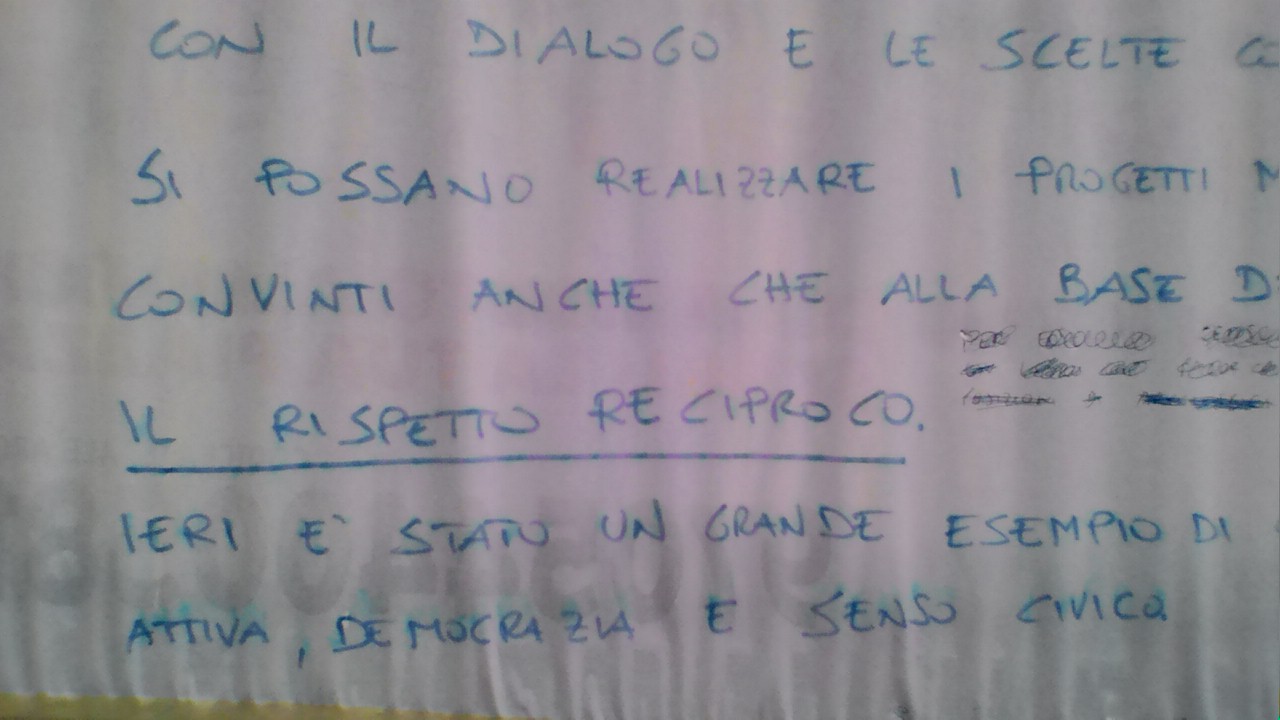 CON IL DIALOGO E LE SCELTE
SI POSSANO REALIZZARE I PROGETTI
CONVINTI ANCHE CHE ALLA BASE
PER
IL RISPETTO RECIPROCO.
IERI E' STATO UN GRANDE ESEMPIO DI
ATTIVA, DEMOCRAZIA E SENSO CIVICO.